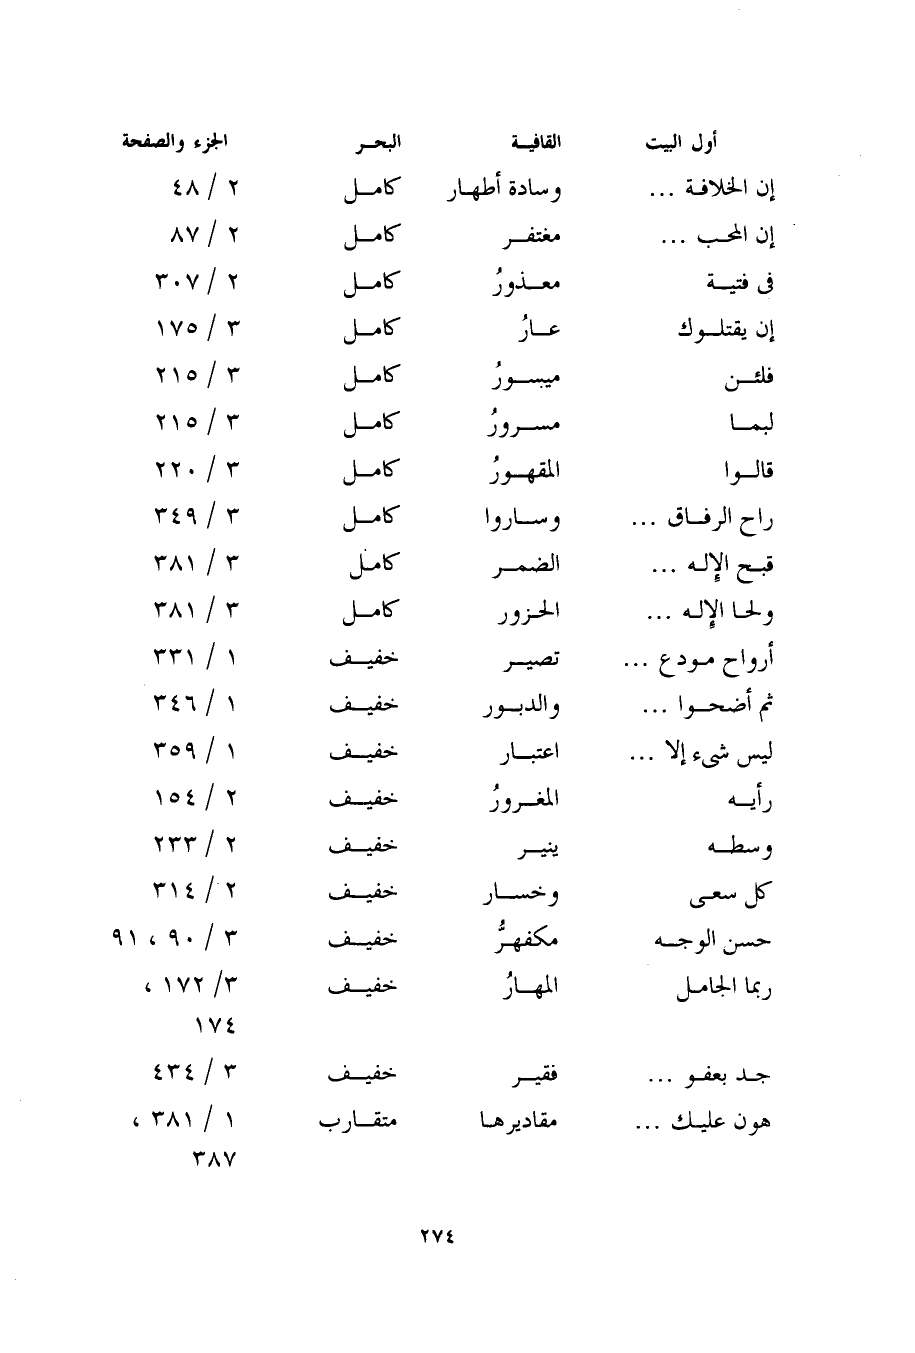 أول البيت القافيـة البحـر الجزء والصفحة
إن الخلافـة ... وسادة أطهـار كامـل ٢ / ٤٨
إن المحـب ... مغتفـر كامـل ٢ / ٨٧
فى فتيـة معـذورُ كامـل ٢ / ٣٠٧
إن يقتلـوك عـارُ كامـل ٣ / ١٧٥
فلئـن ميسـورُ كامـل ٣ / ٢١٥
لبمـا مسـرورُ كامـل ٣ / ٢١٥
قالـوا المقهـورُ كامـل ٣ / ٢٢٠
راح الرفـاق ... وسـاروا كامـل ٣ / ٣٤٩
قبـح الإلـه ... الضمـر كامـل ٣ / ٣٨١
ولحـا الإلـه ... الحـزور كامـل ٣ / ٣٨١
أرواح مـودع ... تصيـر خفيـف ١ / ٣٣١
ثم أضحـوا ... والدبـور خفيـف ١ / ٣٤٦
ليس شىء إلا ... اعتبـار خفيـف ١ / ٣٥٩
رأيـه المغـرورُ خفيـف ٢ / ١٥٤
وسطـه ينيـر خفيـف ٢ / ٢٣٣
كل سعـى وخسـار خفيـف ٢ / ٣١٤
حسن الوجـه مكفهـرُّ خفيـف ٣ / ٩٠ ، ٩١
ربما الجامـل المهـارُ خفيـف ٣/ ١٧٢ ،
١٧٤
جـد بعفـو ... فقيـر خفيـف ٣ / ٤٣٤
هون عليـك ... مقاديرهـا متقـارب ١ / ٣٨١ ،
٣٨٧
٢٧٤